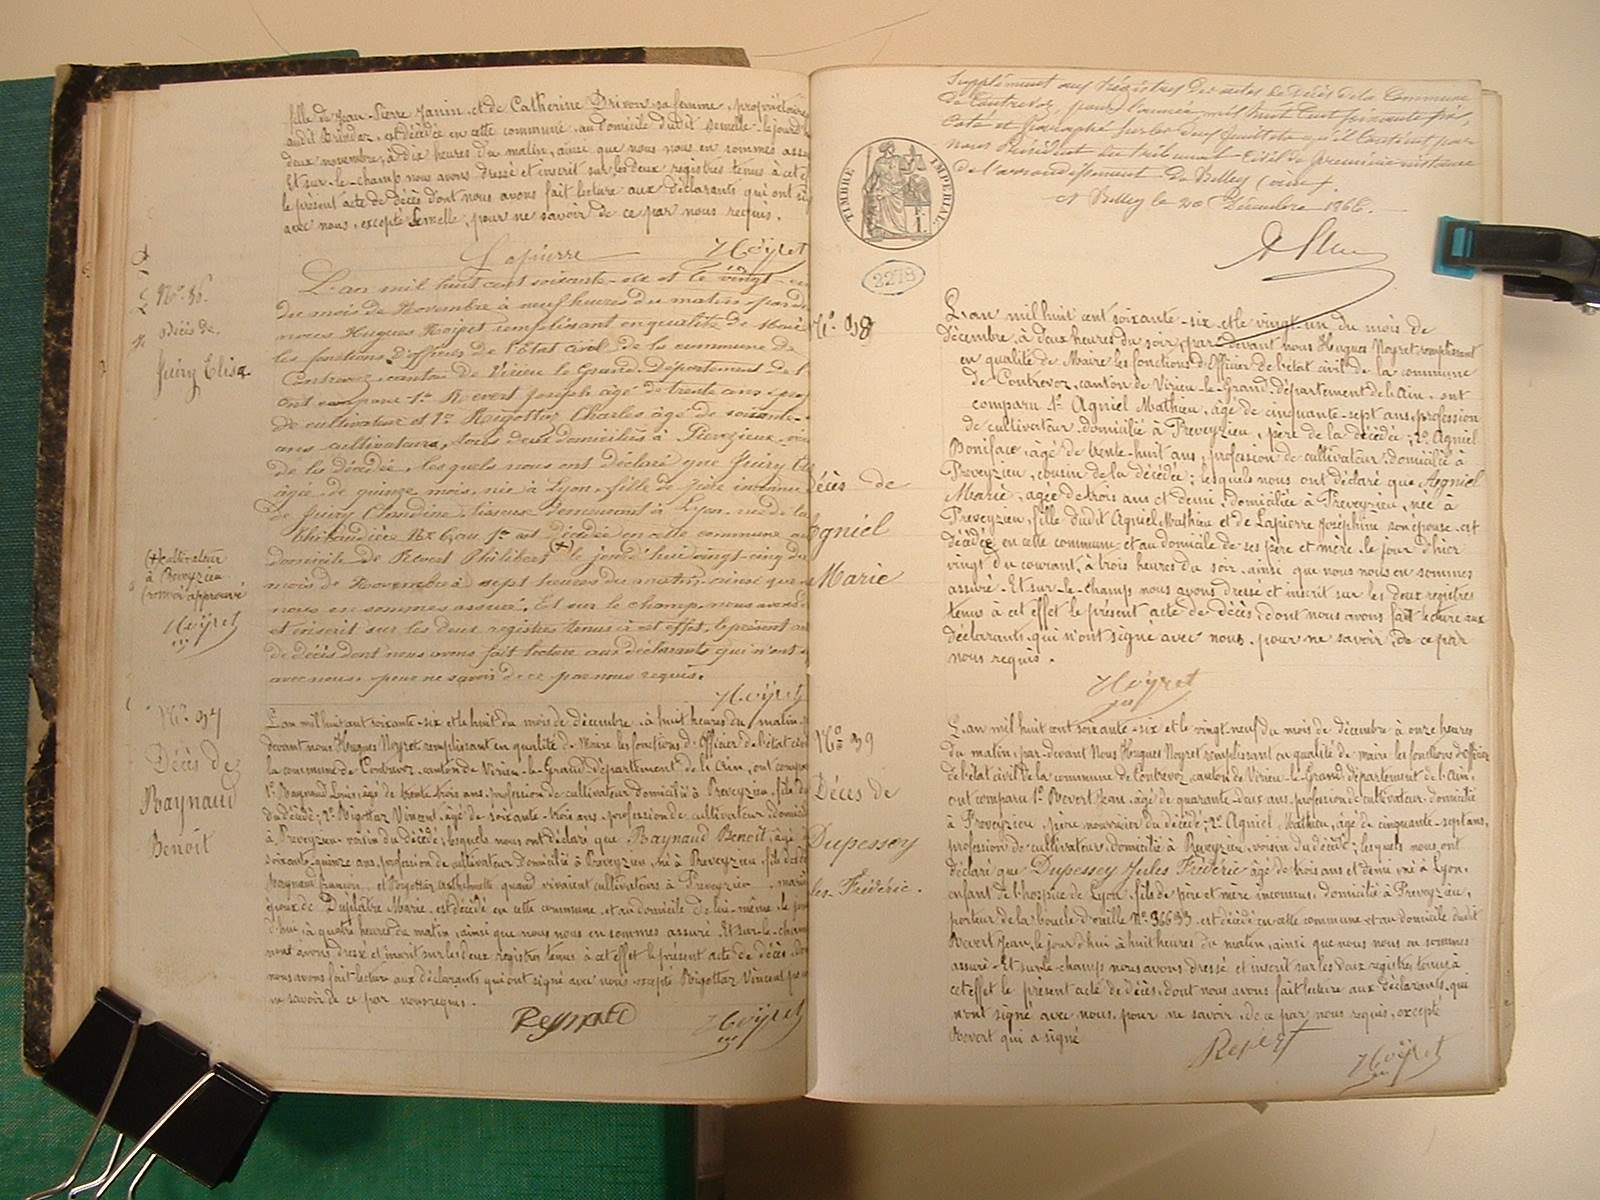 fille de Jean-Pierre Janin et de Catherine Drivon sa femme, propriétaire
audit est décédée en cette commune au domicile dudit Semelle le jourd
deux novembre, à dix heures du matin, ainsi que nous nous en sommes assu
Et sur-le-champ nous avons dressé et inscrit sur les deux registres tenus à cet e
le présent acte de décès dont nous avons fait lecture aux déclarants qui ont si
avec nous, excepté Semelle, pour ne savoir de ce par nous requis.
Lapierre Noyret
No. 36.
Décès de
Juiry Elisa
L'an mil huit cent soixante-six et le vingt-
du mois de Novembre à neuf heures du matin par de
nous Hugues Noyret remplissant en qualité de Maire
les fonctions d'officier de l'Etat civil de la commune de
Contrevoz, canton de Virieu le Grand, Département de l'
ont comparu 1º Revert Joseph âgé de trente ans prof
de cultivateur et 2º Rigottaz Charles âgé de soixante
ans cultivateurs, tous deux domiciliés à Preveyzieu,
de la décédée, lesquels nous ont déclaré que Juiry
âgée de quinze mois, née à Lyon, fille de père inconnu
de Juiry Claudine, demeurant à Lyon, rue de la
est décédée en cette commune au
domicile de Revert Philibert (+) le jourd'hui vingt-cinq du
mois de Novembre à sept heures du matin, ainsi que
nous en sommes assuré. Et sur le champ nous avons d
et inscrit sur les deux registres tenus à cet effet, le présent
de décès dont nous avons fait lecture aux déclarants qui n'ont
avec nous, pour ne savoir de ce par nous requis.
Noyret
(+) cultivateur
à Preveyzieu
renvoi approuvé
Noyret
No. 37
Décès de
Raynaud
Benoît
L'an mil huit cent soixante-six et le huit du mois de décembre, à huit heures du matin
devant nous Hugues Noyret remplissant en qualité de Maire les fonctions d'Officier de l'état civil
la commune de Contrevoz, canton de Virieu-le-Grand, département de l'Ain, ont compa
1º. Raynaud Louis, âgé de trente trois ans, profession de cultivateur domicilié à Preveyzieu, fils du
du décédé; 2º. Rigottaz Vincent, âgé de soixante-trois ans, profession de cultivateur domici
à Preveyzieu, voisin du décédé; lesquels nous ont déclaré que Raynaud Benoît, âgé
soixante-quinze ans, profession de cultivateur domicilié à Preveyzieu, né à Preveyzieu, fils de
Raynaud et Rigottaz quand vivaient cultivateurs à Preveyzieu
époux de Duplâtre Marie est décédé en cette commune et au domicile de lui-même le jour
d'hui à quatre heures du matin, ainsi que nous nous en sommes assuré. Et sur-le-cham
nous avons dressé et inscrit sur les deux registres tenus à cet effet le présent acte de décès, don
nous avons fait lecture aux déclarants qui ont signé avec nous, excepté Rigottaz Vincent pour
ne savoir de ce par nous requis.
Reynaud Noyret
Supplément aux Registres des actes de Décès de la Commune
de Contrevoz, pour l'année mil huit cent soixante six,
Coté et Paraphé sur les deux feuillets qu'il contient par
nous Président du tribunal Civil de première instance
de l'arrondissement de Belley (Ain).
A Belley le 20 Décembre 1866.
TIMBRE IMPERIAL
2278
No. 38
Décès de
Agniel
Marie
L'an mil huit cent soixante-six et le vingt-un du mois de
décembre, à deux heures du soir, par devant nous Hugues Noyret remplissant
en qualité de Maire les fonctions d'Officier de l'état civil de la commune
de Contrevoz, canton de Virieu-le-Grand, département de l'Ain, ont
comparu 1º. Agniel Mathieu, âgé de cinquante-sept ans, profession
de cultivateur domicilié à Preveyzieu, père de la décédée; 2º. Agniel
Boniface, âgé de trente-huit ans, profession de cultivateur domicilié à
Preveyzieu, cousin de la décédée; lesquels nous ont déclaré que Agniel
Marie, âgée de trois ans et demi, domiciliée à Preveyzieu, née à
Preveyzieu, fille dudit Agniel Mathieu et de Lapierre Joséphine son épouse est
décédée en cette commune et au domicile de ses père et mère le jour d'hier
vingt du courant, à trois heures du soir, ainsi que nous nous en sommes
assuré. Et sur-le-champ nous avons dressé et inscrit sur les deux registres
tenus à cet effet le présent acte de décès, dont nous avons fait lecture aux
déclarants, qui n'ont signé avec nous, pour ne savoir, de ce par
nous requis.
Noyret
No. 39
Décès de
Dupessey
les-Frédéric.
L'an mil huit cent soixante-six et le vingt-neuf du mois de décembre à onze heures
du matin, par devant Nous Hugues Noyret remplissant en qualité de maire les fonctions d'officier
de l'état civil de la commune de Contrevoz, canton de Virieu-le-Grand, département de l'Ain,
ont comparu 1º. Revert Jean, âgé de quarante-deux ans, profession de cultivateur, domicilié
à Preveyzieu, père nourricier du décédé; 2º. Agniel Mathieu, âgé de cinquante-sept ans,
profession de cultivateur, domicilié à Preveyzieu, voisin du décédé; lesquels nous ont
déclaré que Dupessey Jules Frédéric âgé de trois ans et demi, né à Lyon,
enfant de l'hospice de Lyon, fils de père et mère inconnus, domicilié à Preveyzieu,
porteur de la boucle d'oreille No. 36693 est décédé en cette commune et au domicile dudit
Revert Jean, le jour d'hui à huit heures du matin, ainsi que nous nous en sommes
assuré. Et sur-le-champ nous avons dressé et inscrit sur les deux registres tenus à
cet effet le présent acte de décès, dont nous avons fait lecture aux déclarants, qui
n'ont signé avec nous, pour ne savoir, de ce par nous requis, excepté
Revert qui a signé
Revert Noyret